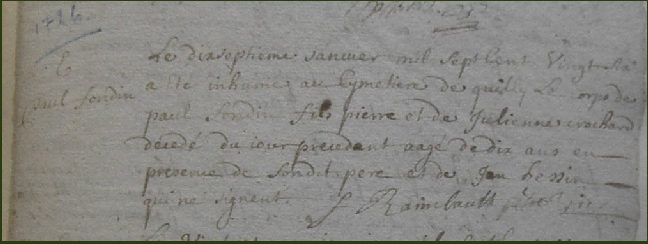 1726
Le dixseptieme Janvier mil sept Cent Vingt six
Paul Sondin
a eté inhumé au Cymetiere de quilly Le corps de
paul Sondin fils pierre et de Julienne crochard
decedé du jour precedant aagé de dix ans en
presence de sondit pere et de Jan hessin
qui ne signent. J Rainebault